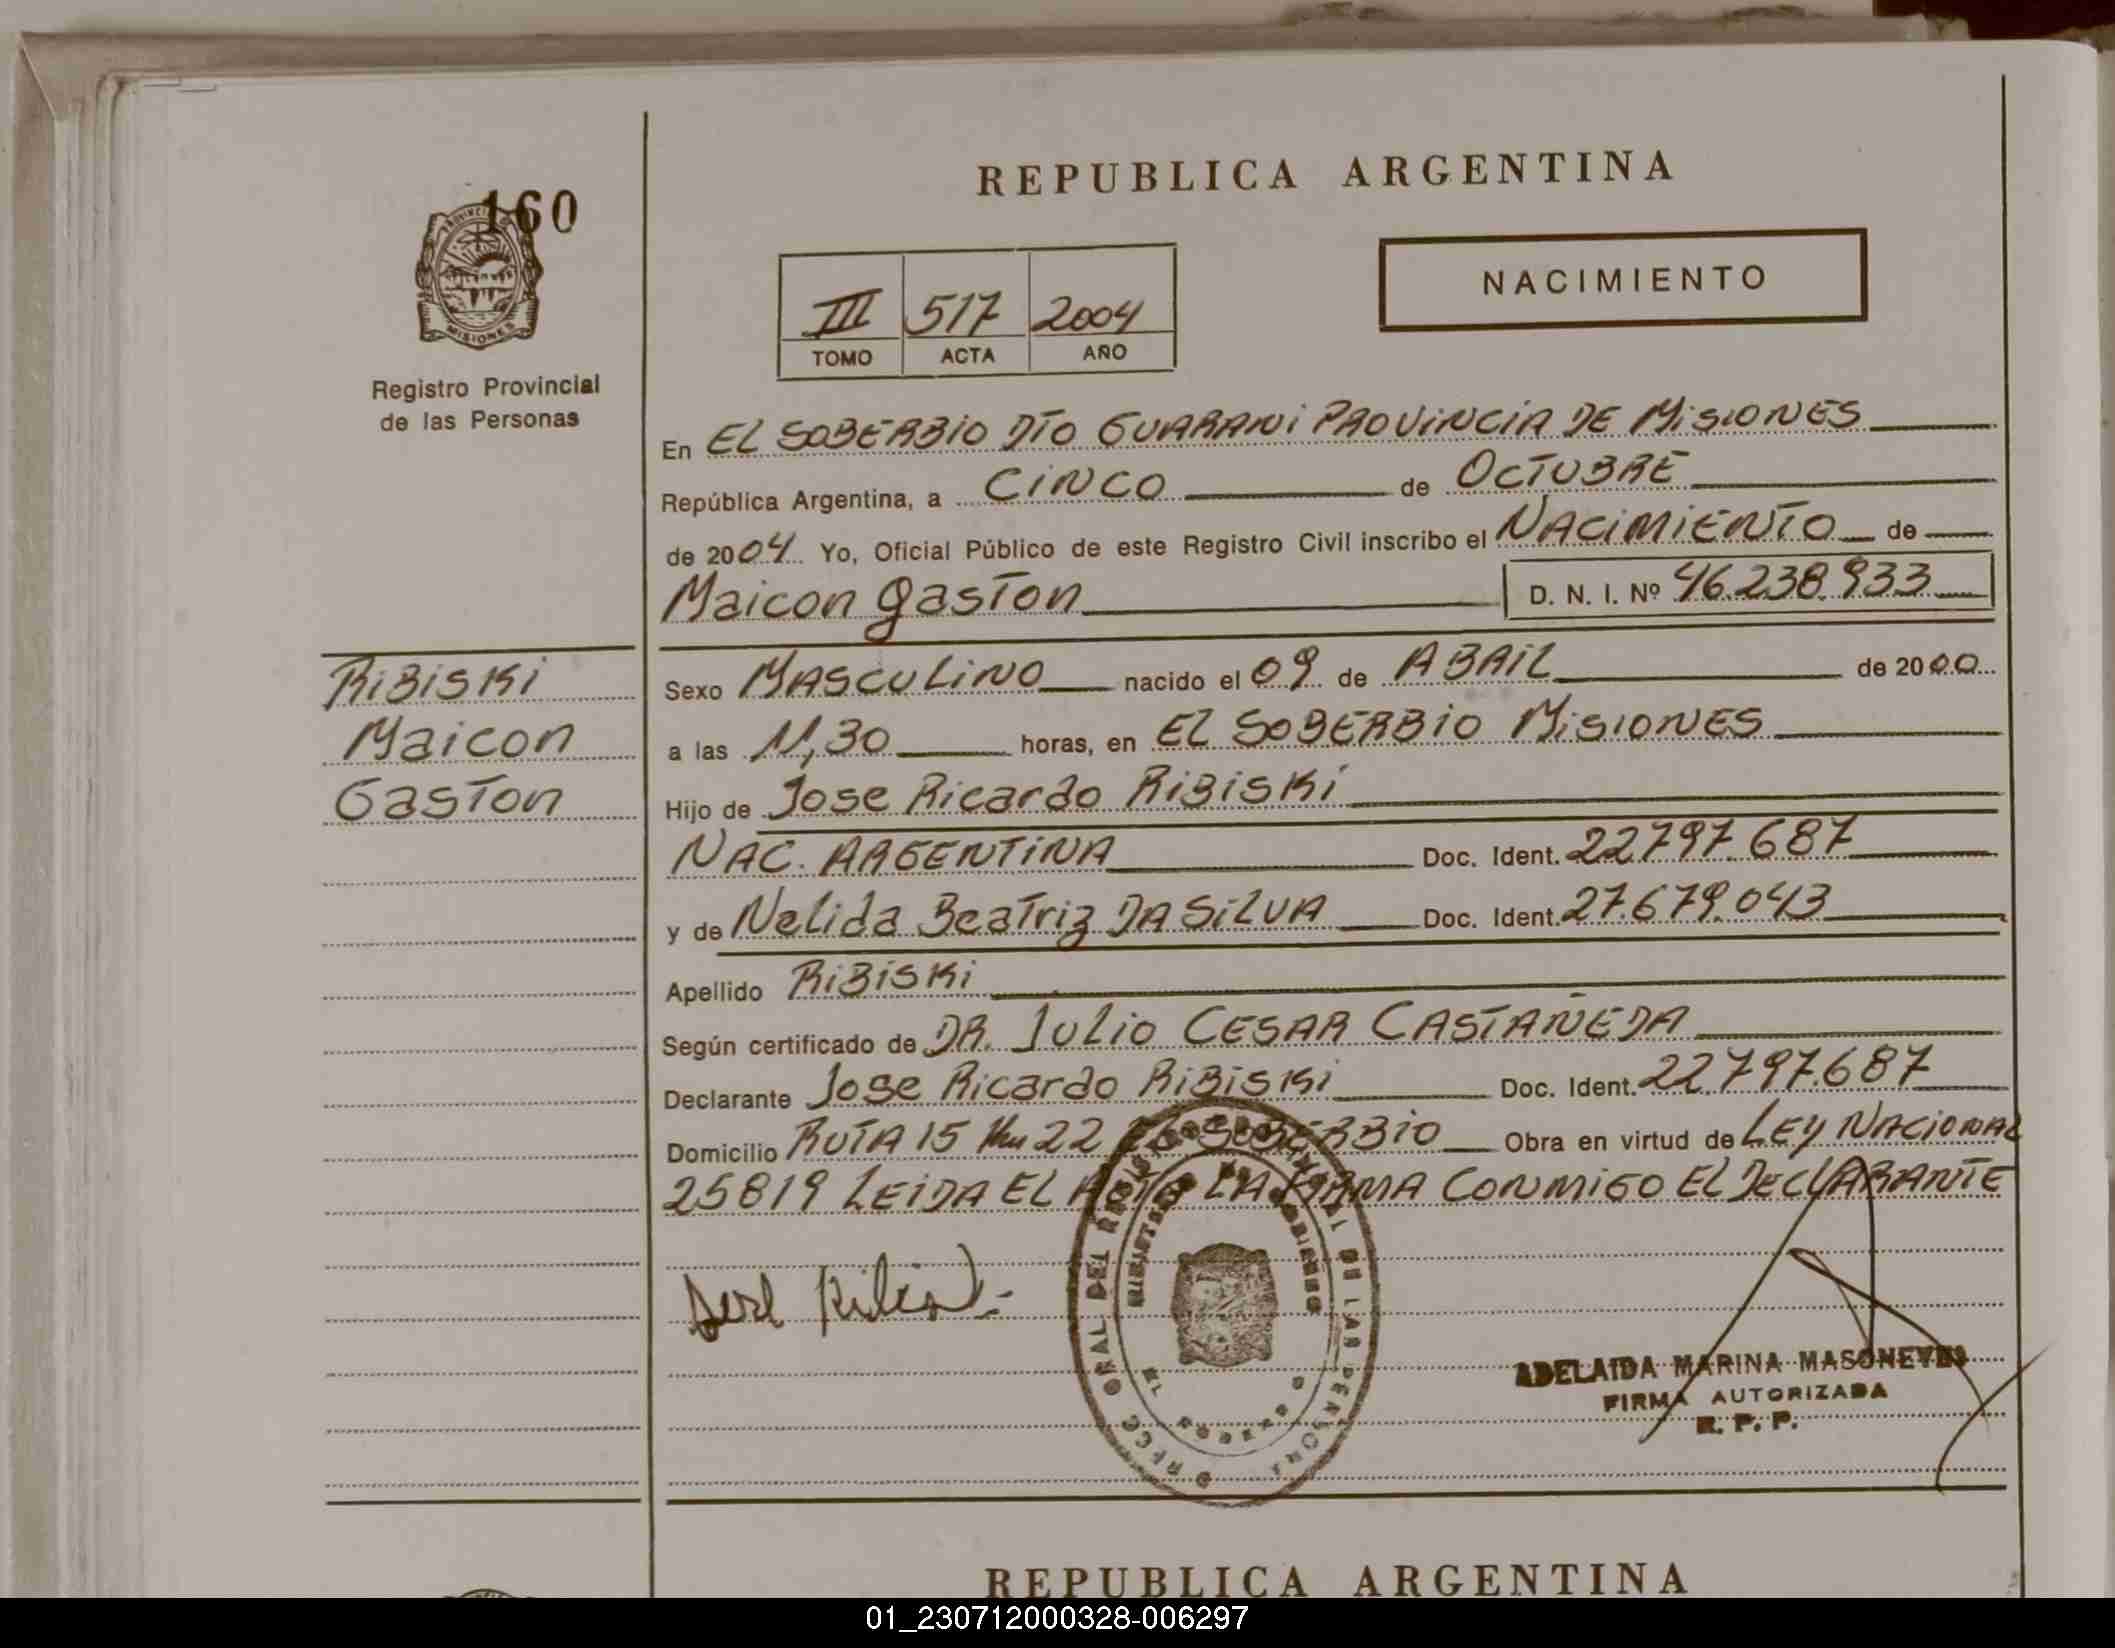 160
PROVINCIA DE
MISIONES
Registro Provincial
de las Personas
RiBiSKi
Maicon
Gaston
REPUBLICA ARGENTINA
NACIMIENTO
III 517 2004
TOMO ACTA AÑO
En EL SOBERBIO DTO GUARANI PROVINCIA DE MISIONES
República Argentina, a CINCO de OCTUBRE
de 2004 Yo, Oficial Público de este Registro Civil inscribo el NACIMIENTO de
Maicon gaston D. N. I. Nº 46.238.933
Sexo MASCULINO nacido el 09 de ABRIL de 2000
a las 11,30 horas, en EL SOBERBIO MISIONES
Hijo de Jose Ricardo RIBISKI
NAC. ARGENTINA Doc. Ident. 22797.687
y de Nelida Beatriz DA SILVA Doc. Ident. 27.679.043
Apellido RIBISKI
Según certificado de DR. JULIO CESAR CASTAÑEDA
Declarante Jose Ricardo RIBISKI Doc. Ident. 22.797.687
Domicilio RUTA 15 Km 22 EL SOBERBIO Obra en virtud de LEY NACIONAL
25819 LEIDA EL ACTA LA FIRMA CONMIGO EL DECLARANTE
ADELAIDA MARINA MASONEVES
FIRMA AUTORIZADA
R. P. P.
REPUBLICA ARGENTINA
01_230712000328-006297